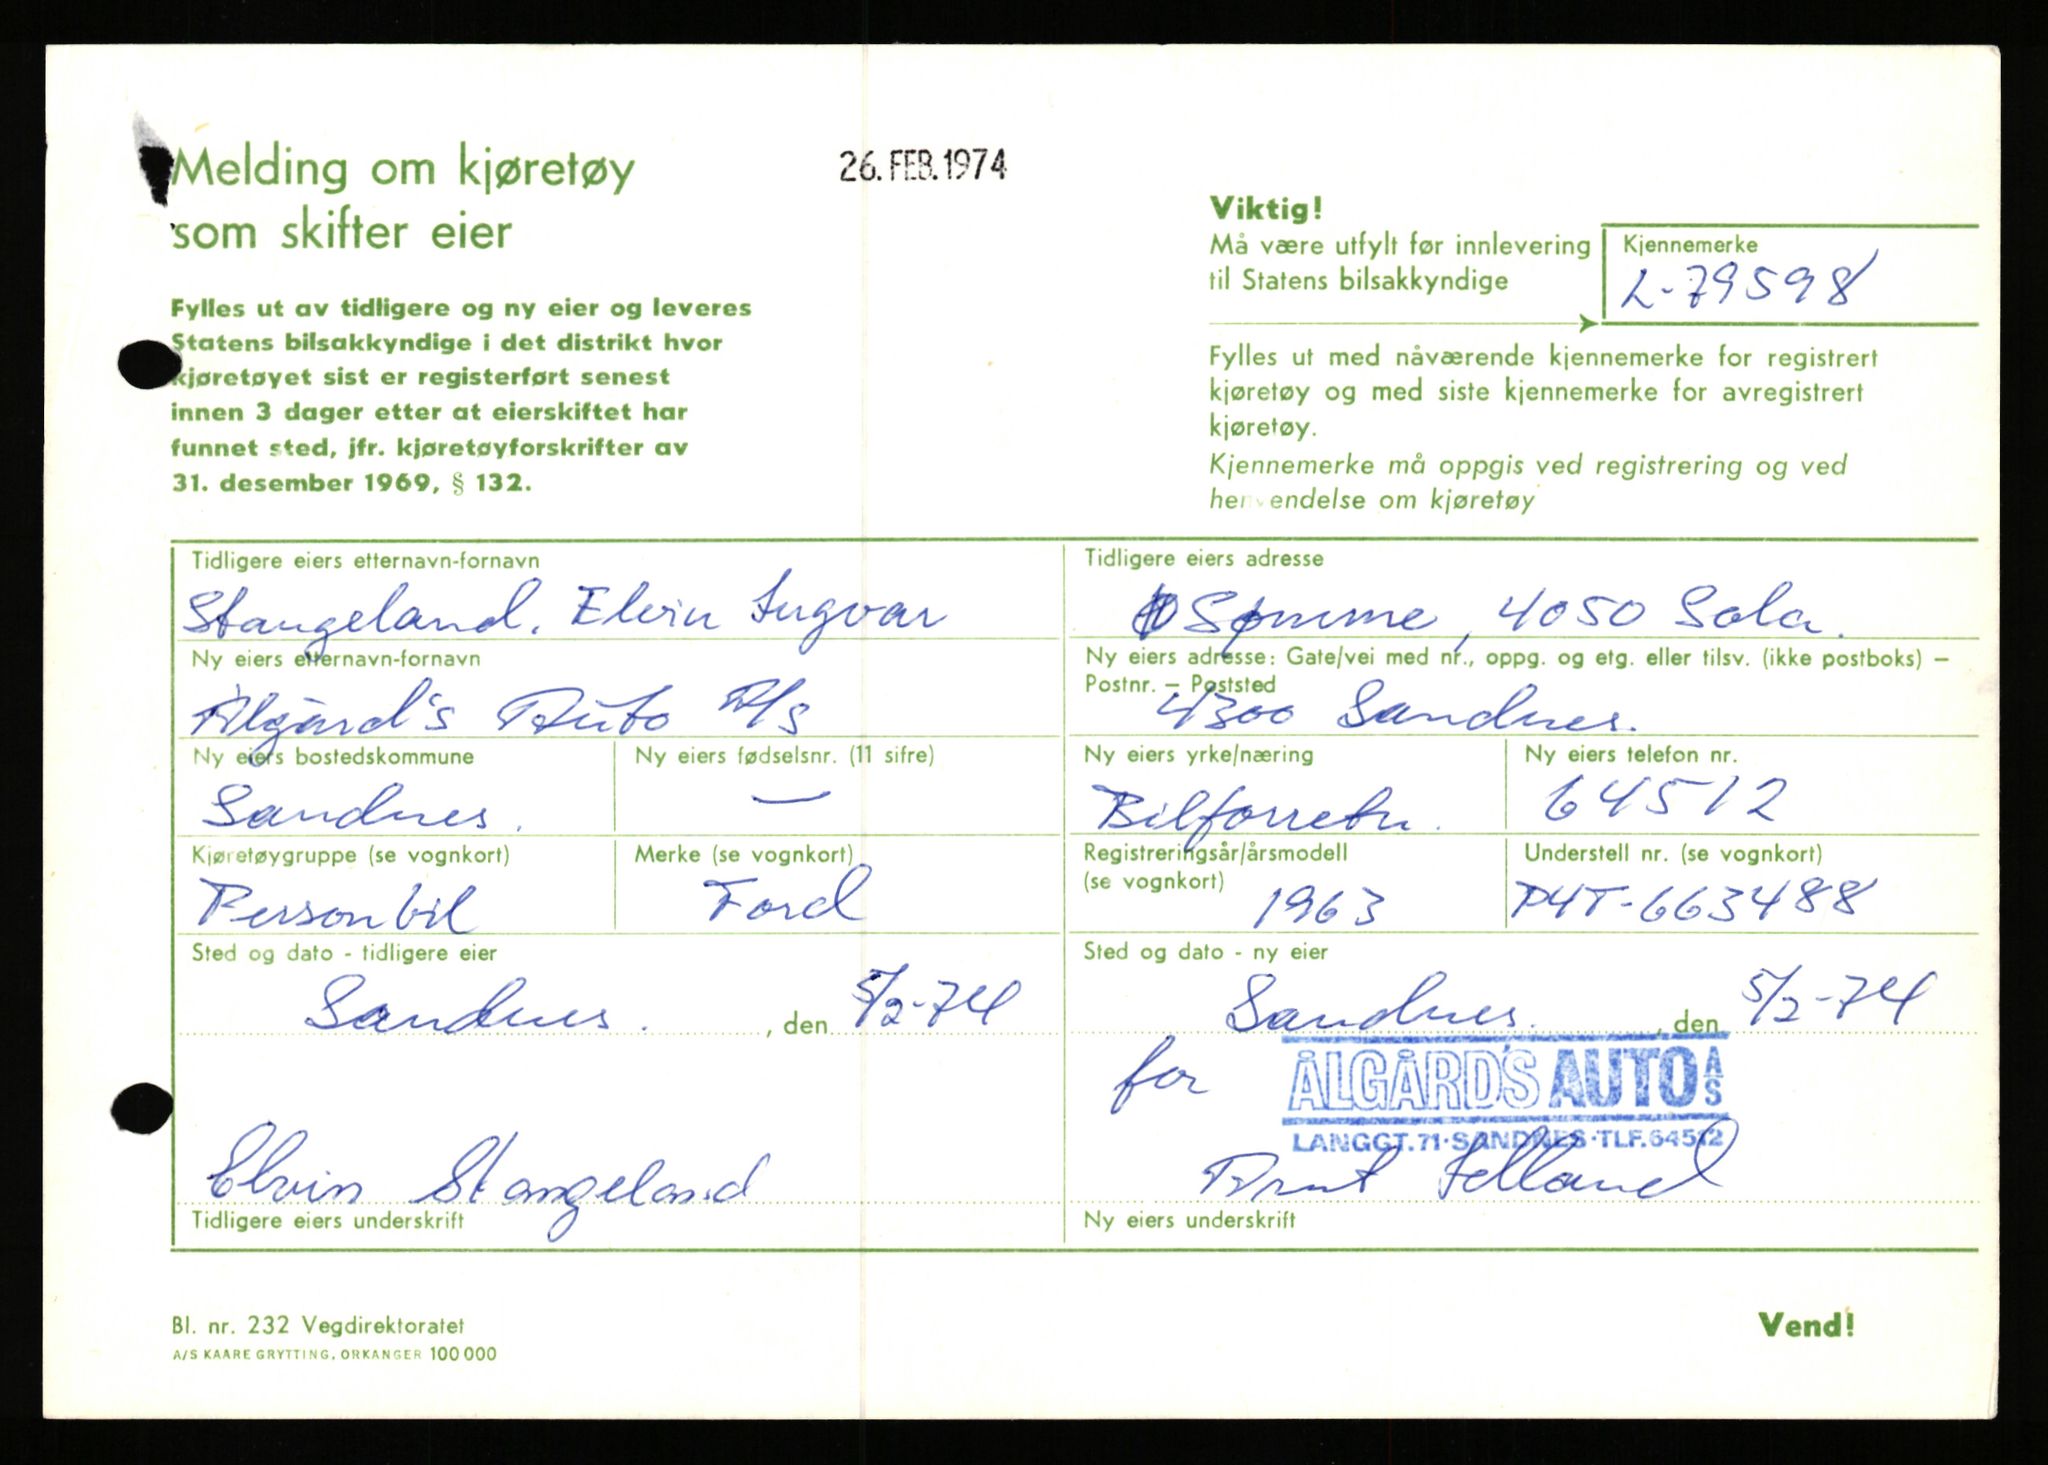 Melding om kjøretøy
som skifter eier
26. FEB. 1974
Fylles ut av tidligere og ny eier og leveres
Statens bilsakkyndige i det distrikt hvor
kjøretøyet sist er registerført senest
innen 3 dager etter at eierskiftet har
funnet sted, jfr. kjøretøyforskrifter av
31. desember 1969, § 132.
Viktig!
Må være utfylt før innlevering
til Statens bilsakkyndige
Kjennemerke
L-79598
Fylles ut med nåværende kjennemerke for registrert
kjøretøy og med siste kjennemerke for avregistrert
kjøretøy.
Kjennemerke må oppgis ved registrering og ved
henvendelse om kjøretøy
Tidligere eiers etternavn-fornavn
Stangeland, Elvin Ingvar
Tidligere eiers adresse
Sømme, 4050 Sola.
Ny eiers etternavn-fornavn
Ålgård's Auto A/S
Ny eiers adresse: Gate/vei med nr., oppg. og etg. eller tilsv. (ikke postboks) –
Postnr. – Poststed
4300 Sandnes.
Ny eiers bostedskommune
Sandnes.
Ny eiers fødselsnr. (11 sifre)
—
Ny eiers yrke/næring
Bilforretn.
Ny eiers telefon nr.
64512
Kjøretøygruppe (se vognkort)
Personbil
Merke (se vognkort)
Ford
Registreringsår/årsmodell
(se vognkort)
1963
Understell nr. (se vognkort)
P4T-663488
Sted og dato - tidligere eier
Sandnes. , den 5/2-74
Sted og dato - ny eier
Sandnes. , den 5/2-74
for
ÅLGÅRD'S AUTO A/S
LANGGT. 71 · SANDNES · TLF. 64512
Elvin Stangeland
Tidligere eiers underskrift
Ny eiers underskrift
Bl. nr. 232 Vegdirektoratet
A/S KAARE GRYTTING, ORKANGER 100 000
Vend!